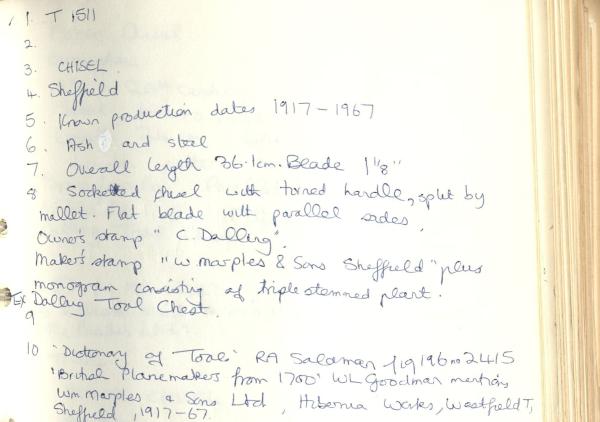 1. T 1511
2.
3. CHISEL.
4. Sheffield
5. Known production dates 1917-1967
6. Ash and steel
7. Overall length 36.1cm. Blade 1"8"
8 Socketted chisel with turned handle, split by
mallet. Flat blade with parallel sides.
Owner's stamp "C. Dalling".
Maker's stamp "W. marples & Sons Sheffield" plus
monogram consisting of triple stemned plant.
Ex Dalling Tool Chest.
9
10 'Dictionary of Tools' RA Salaman fig 196 no 2415
'British Planemakers from 1700' WL Goodman mentions
Wm Marples & Sons Ltd, Hibernia Works, Westfield T,
Sheffield, 1917-67.